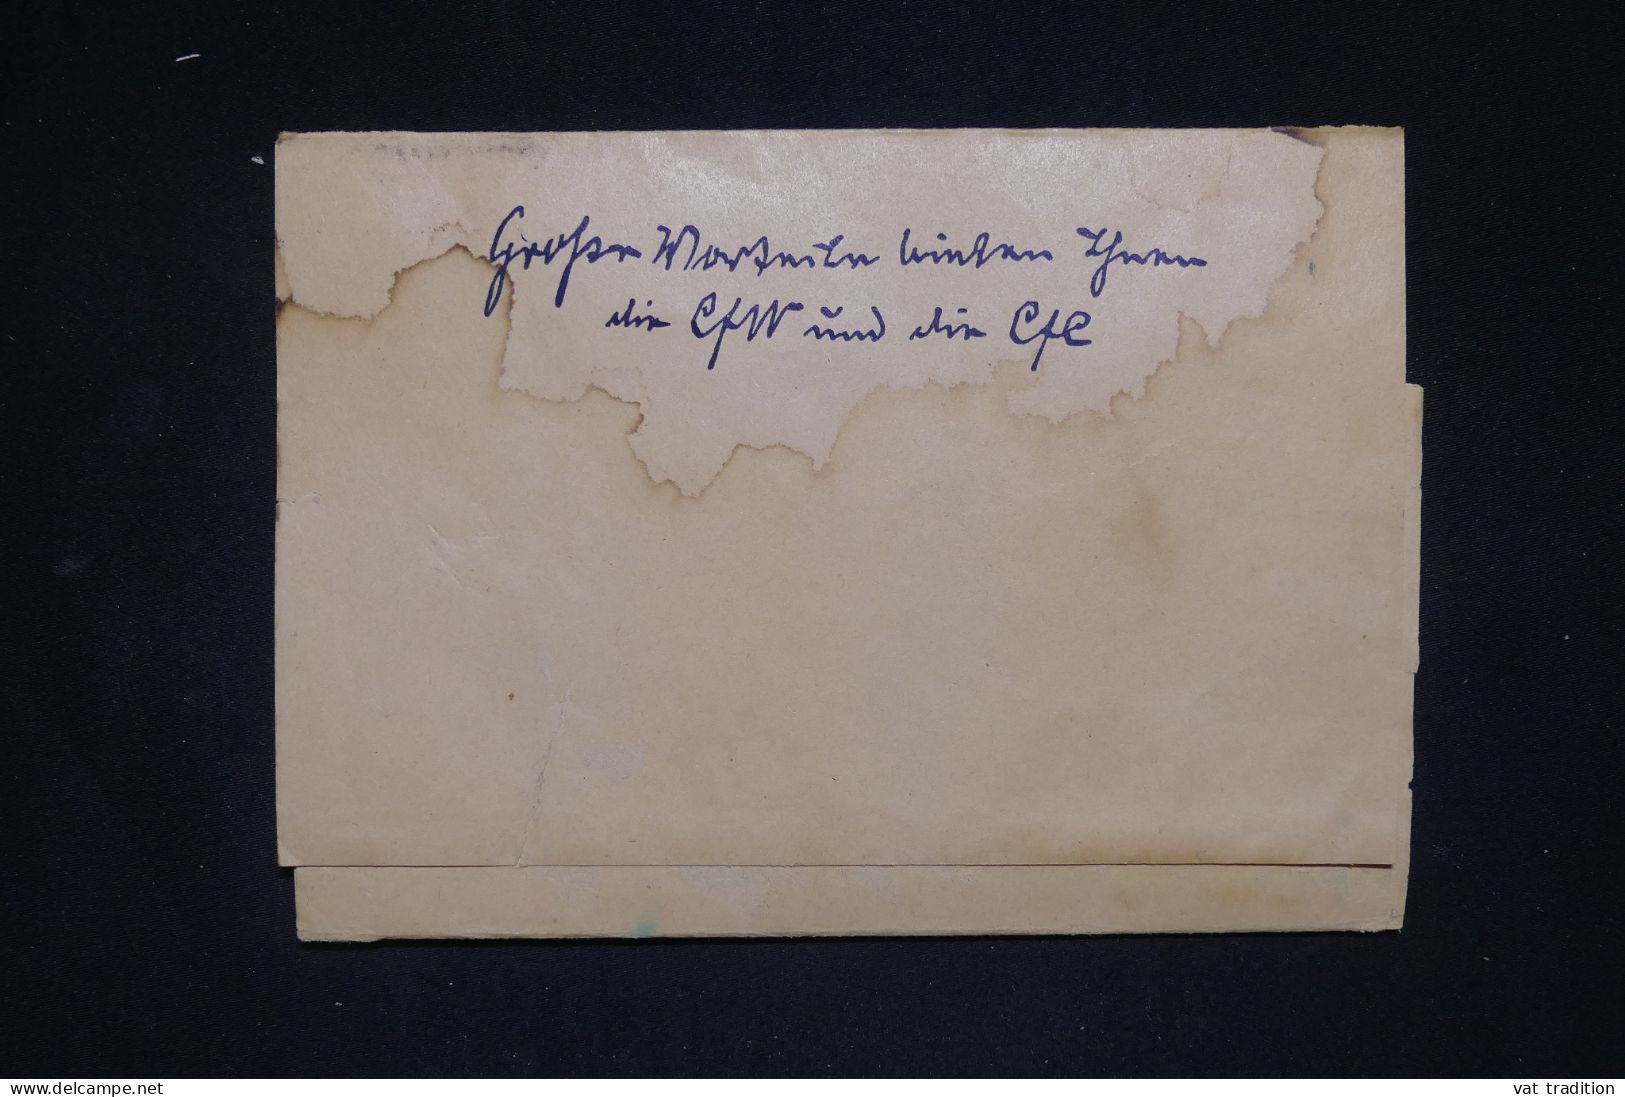 Große Vorteile bieten Ihnen
die CfW und die CfC
www.delcampe.net
vat_tradition